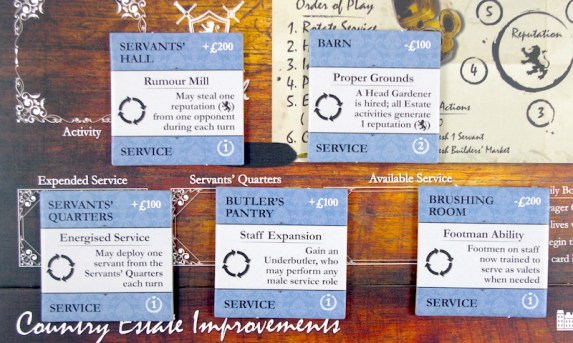 Order of Play
1. Rotate Service
2. H
3. In
4. P
5. E
6. C
Reputation
5
4
3
Actions
esh 1 Servant
esh Builders' Market
Activity
SERVANTS' HALL +£200
Rumour Mill
May steal one
reputation ( )
from one opponent
during each turn
SERVICE 1
BARN -£100
Proper Grounds
A Head Gardener
is hired; all Estate
activities generate
1 reputation ( )
SERVICE 2
Expended Service
Servants' Quarters
Available Service
SERVANTS' QUARTERS +£100
Energised Service
May deploy one
servant from the
Servants' Quarters
each turn
SERVICE 1
BUTLER'S PANTRY +£100
Staff Expansion
Gain an
Underbutler, who
may perform any
male service role
SERVICE 1
BRUSHING ROOM -£200
Footman Ability
Footmen on staff
now trained to
serve as valets
when needed
SERVICE 1
ily Bo
yager C
lives v
egin th
card i
Country Estate Improvements